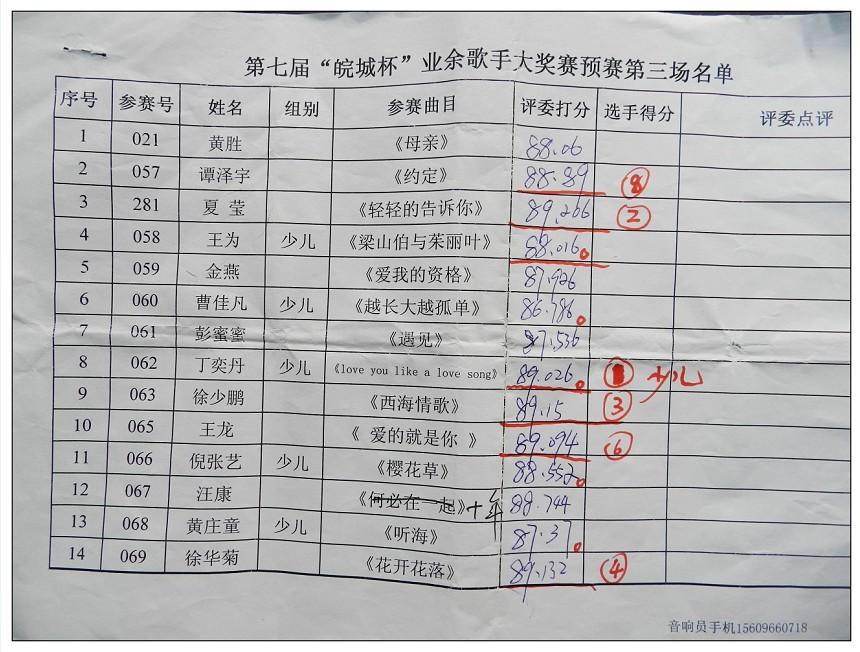 第七届“皖城杯”业余歌手大奖赛预赛第三场名单
序号 参赛号 姓名 组别 参赛曲目 评委打分 选手得分 评委点评
1 021 黄胜 《母亲》 88.06
2 057 谭泽宇 《约定》 88.89 ⑧
3 281 夏 莹 《轻轻的告诉你》 89.266 ②
4 058 王为 少儿 《梁山伯与茱丽叶》 88.016
5 059 金燕 《爱我的资格》 87.926
6 060 曹佳凡 少儿 《越长大越孤单》 86.786
7 061 彭蜜蜜 《遇见》 87.536
8 062 丁奕丹 少儿 《love you like a love song》 89.026 ① 少儿
9 063 徐少鹏 《西海情歌》 89.15 ③
10 065 王龙 《 爱的就是你 》 89.094 ⑥
11 066 倪张艺 少儿 《樱花草》 88.552
12 067 汪康 《何必在一起》十年 88.744
13 068 黄庄童 少儿 《听海》 87.37
14 069 徐华菊 《花开花落》 89.132 ④
音响员手机15609660718